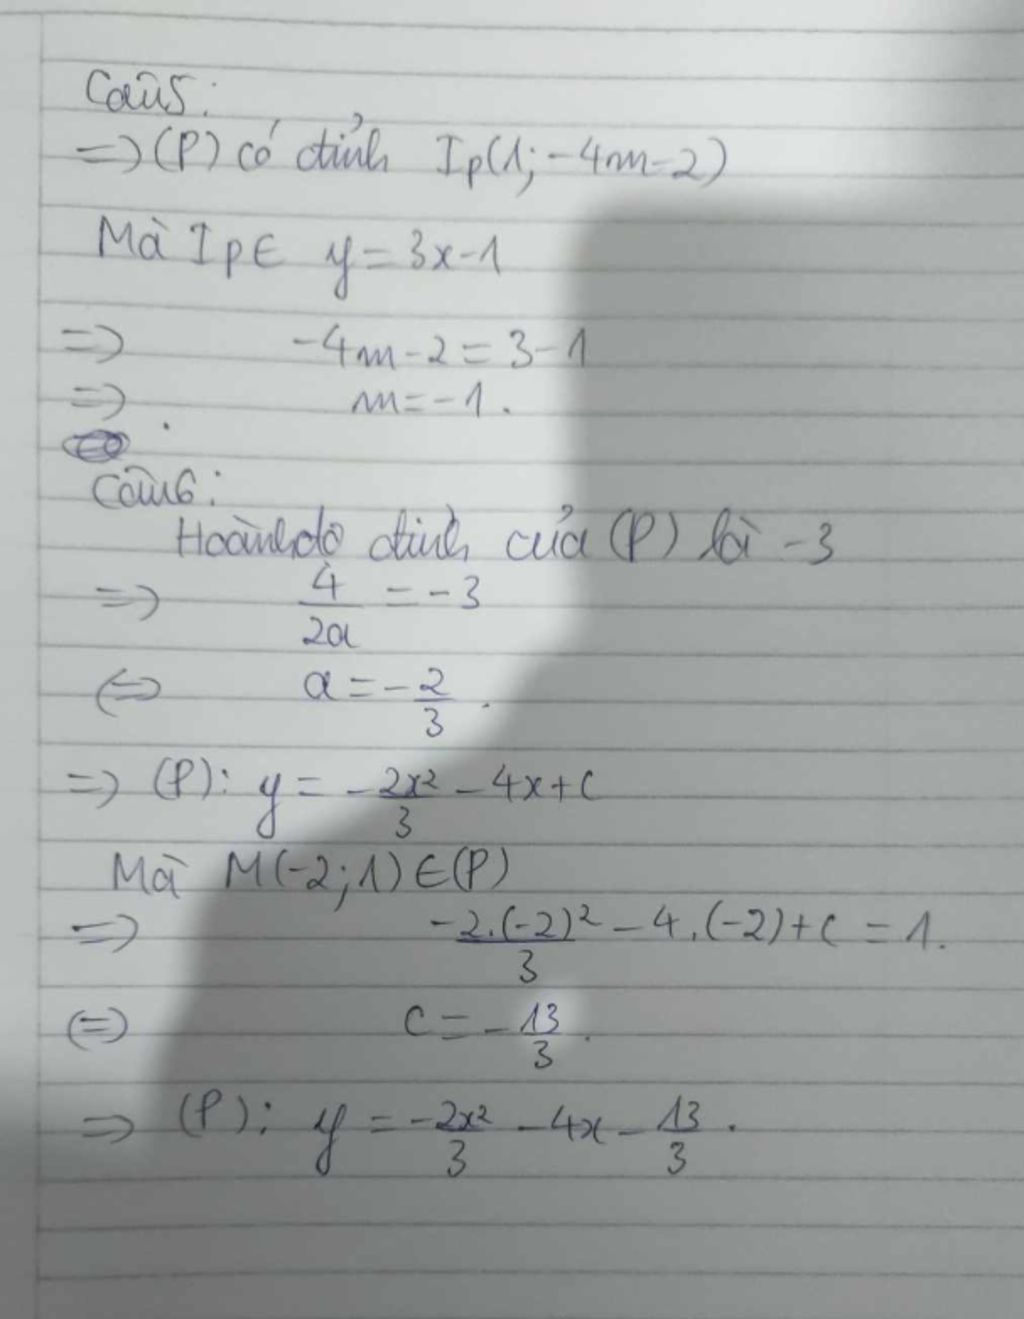 Câu5:
=> (P) có đỉnh Ip(1; -4m-2)
Mà Ip∈ y = 3x-1
=> -4m-2 = 3-1
=> m=-1.
Câu6:
Hoành độ đỉnh của (P) là -3
=> 4/2a = -3
<=> a = -2/3.
=> (P): y = -2x²/3 - 4x + c
Mà M(-2;1) ∈(P)
=> -2.(-2)²/3 - 4.(-2) + c = 1.
(=) c = -13/3.
=> (P): y = -2x²/3 - 4x - 13/3.